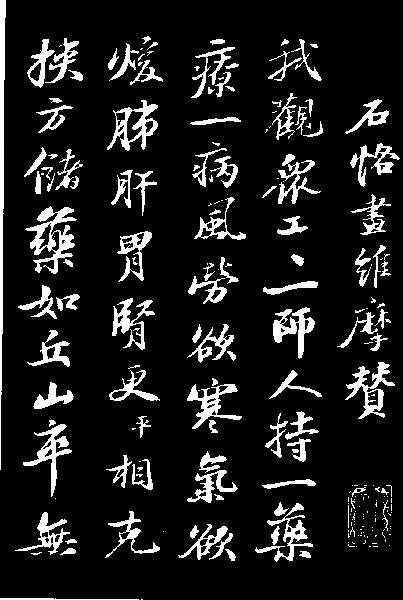 石恪畫維摩贊
我觀衆工〻一師人持一藥
療一病風勞欲寒氣欲
煖肺肝胃腎更平相克
挾方儲藥如丘山卒無